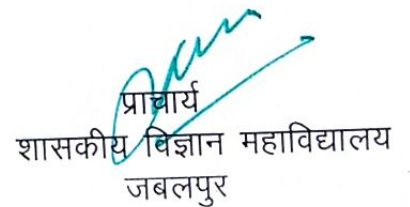 प्राचार्य
शासकीय विज्ञान महाविद्यालय
जबलपुर